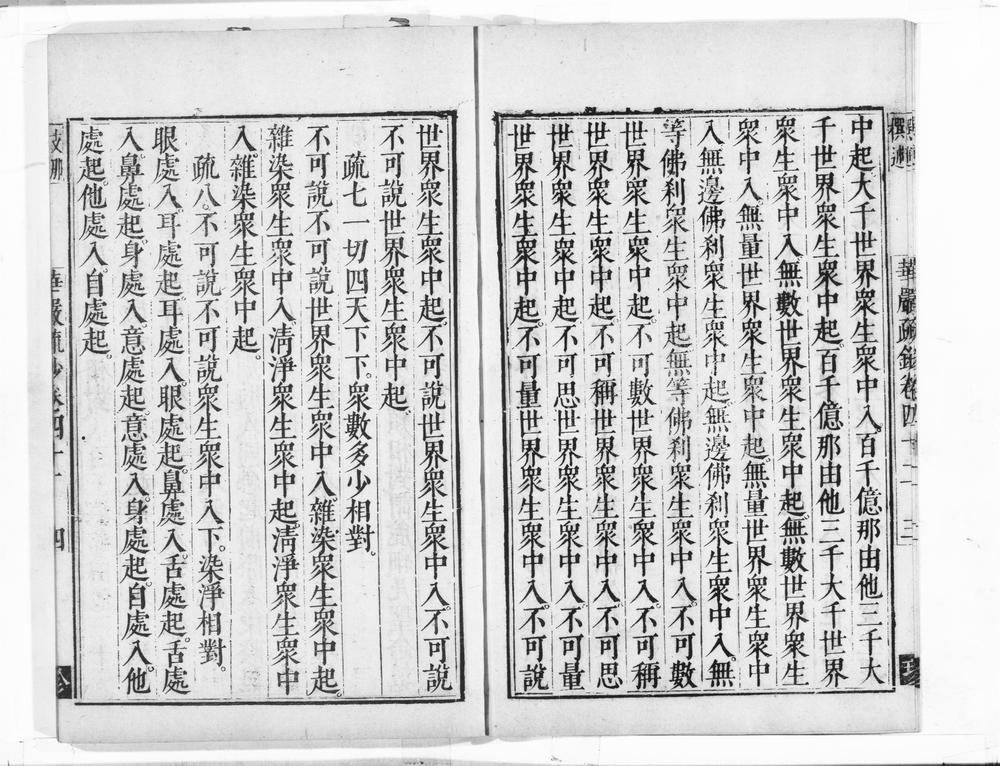 撰述
華嚴疏鈔卷四十
三
中起。大千世界衆生衆中入。百千億那由他三千大
千世界衆生衆中起。百千億那由他三千大千世界
衆生衆中入。無數世界衆生衆中起。無數世界衆生
衆中入。無量世界衆生衆中起。無量世界衆生衆中
入。無邊佛刹衆生衆中起。無邊佛刹衆生衆中入。無
等佛刹衆生衆中起。無等佛刹衆生衆中入。不可數
世界衆生衆中起。不可數世界衆生衆中入。不可稱
世界衆生衆中起。不可稱世界衆生衆中入。不可思
世界衆生衆中起。不可思世界衆生衆中入。不可量
世界衆生衆中起。不可量世界衆生衆中入。不可說
世界衆生衆中起。不可說世界衆生衆中入。不可說
不可說世界衆生衆中起。
疏七一切四天下下。衆數多少相對。
不可說不可說世界衆生衆中入。雜染衆生衆中起。
雜染衆生衆中入。清淨衆生衆中起。清淨衆生衆中
入。雜染衆生衆中起。
疏八。不可說不可說衆生衆中入下。染淨相對。
眼處入。耳處起。耳處入。眼處起。鼻處入。舌處起。舌處
入。鼻處起。身處入。意處起。意處入。身處起。自處入。他
處起。他處入。自處起。
華嚴疏鈔卷四十
四